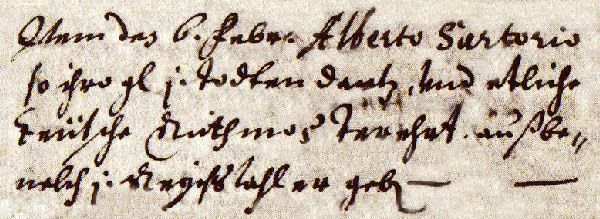 Item den 6. Febr. Alberto Sartorio
so ihro gl j. Todten dantz, und etliche
teütsche Rithmos verehrt. auß be=
nelch j. Reychstahler geben —